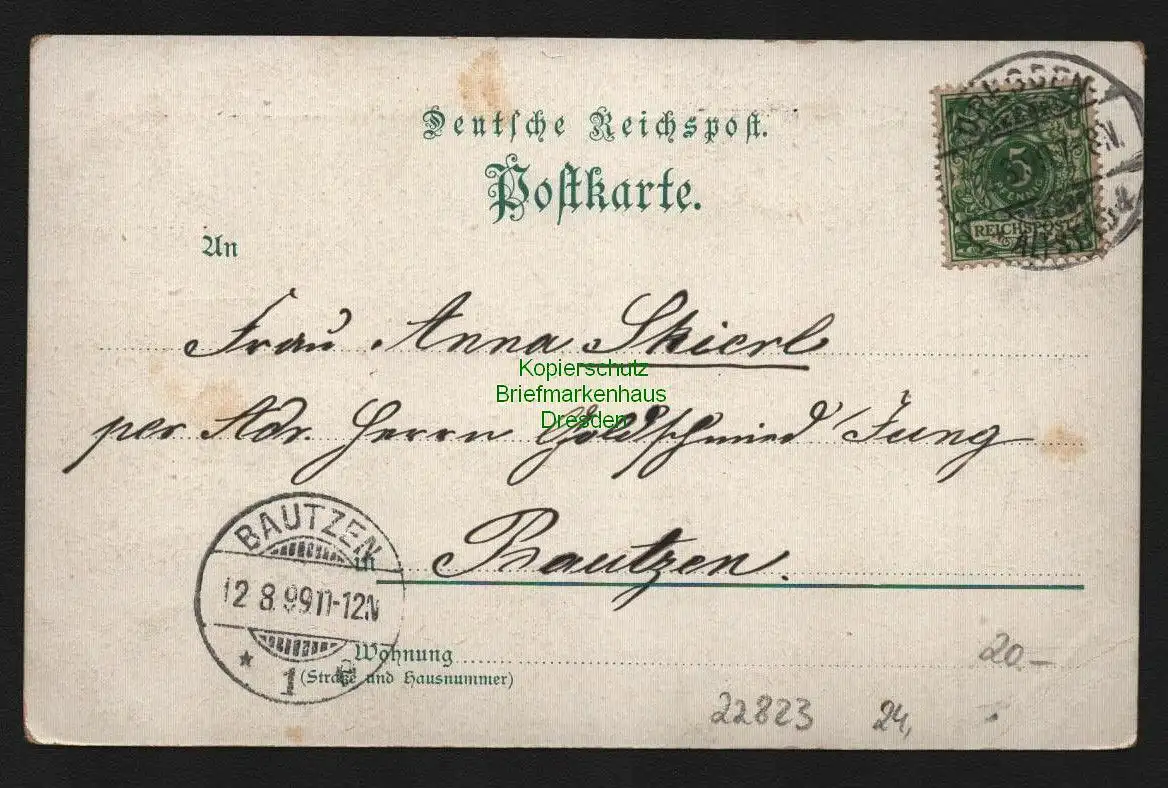 Deutsche Reichspost.
Postkarte.
DRESDEN
7-8N.
ALTST.
5
REICHSPOST
An
Frau Anna Skierl
Kopierschutz
Briefmarkenhaus
Dresden
per Adr. Herrn Goldschmied Jung
in Bautzen.
BAUTZEN
12 8.99 11-12N
* 1
Wohnung
(Straße und Hausnummer)
20.–
22823 24,